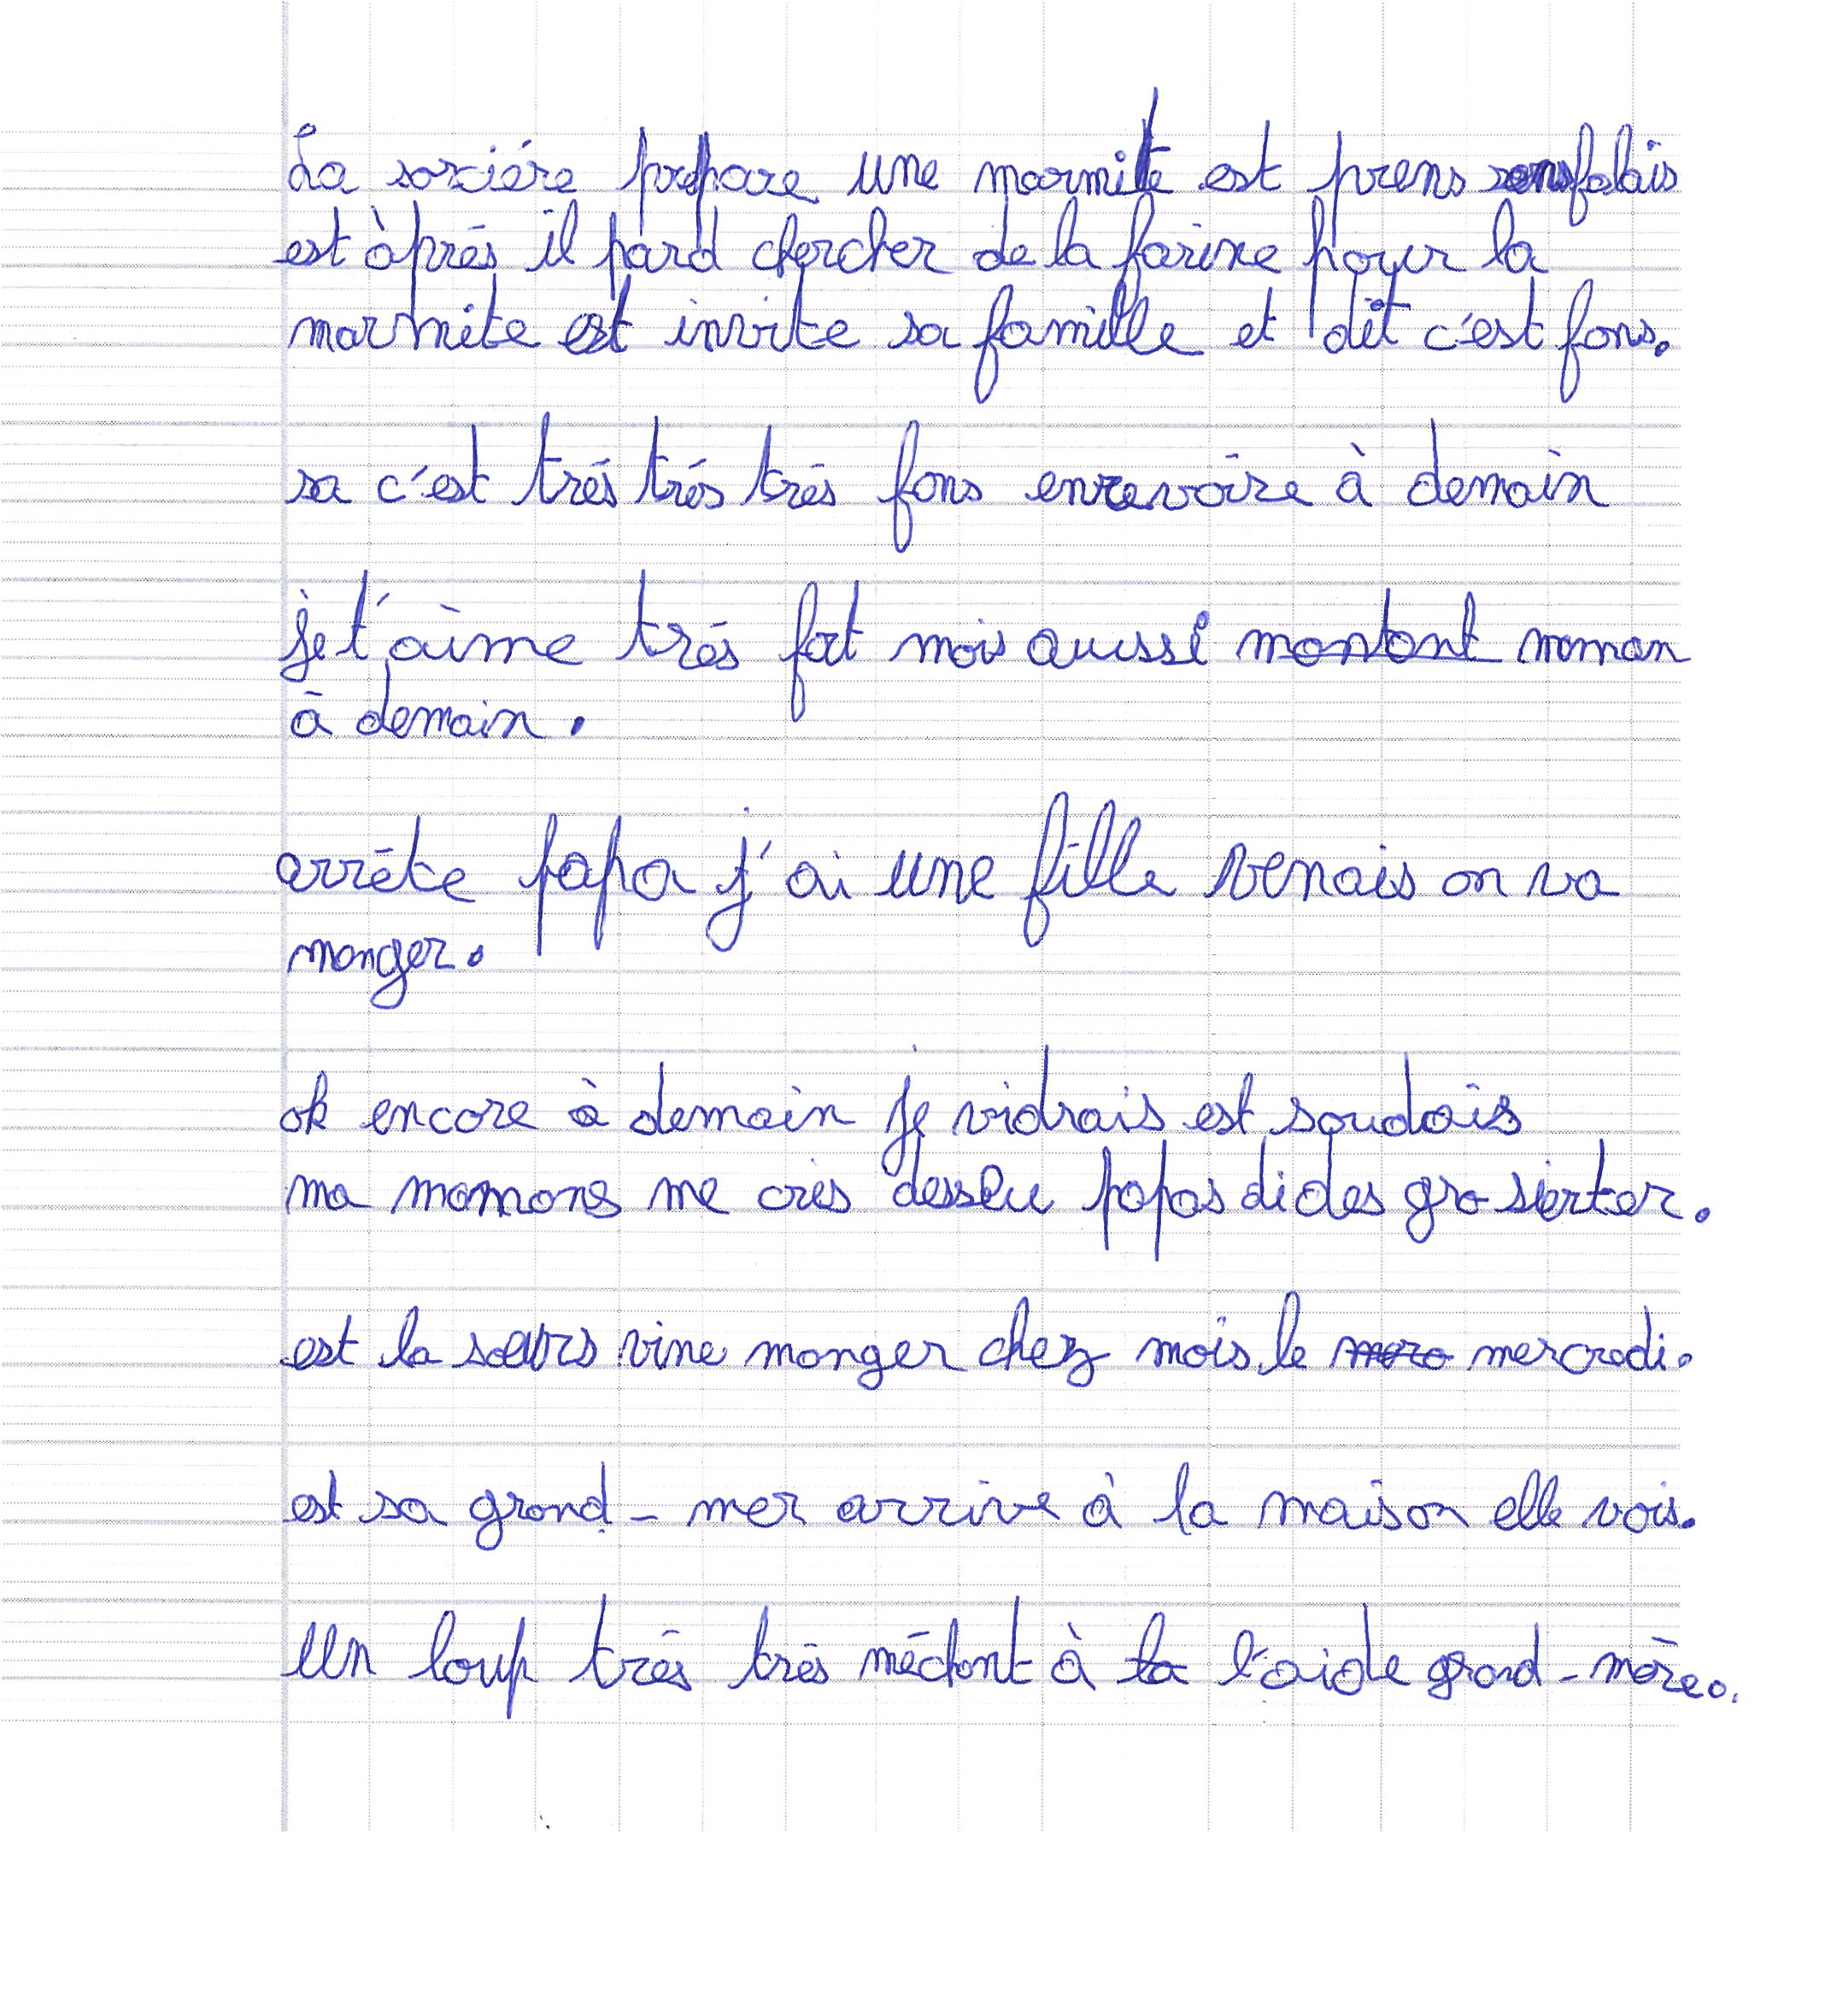 La sorciére prepare une marmite est prens sonsfalais
est àprés il pard chercher de la farine pour la
marmite est invite sa famille et dit c'est fons.
sa c'est trés trés trés fons enrevoire à demain
je t'aime trés fort mois aussi montont moman
à demain.
arrête papa j'ai une fille venais on va
manger.
ok encore à demain je vidrais est soudais
ma mamons me cries desseu papas di des gro sierter.
est la sœurs vine manger chez mois le mero mercredi.
est sa grand-mer arrive à la maison elle vois.
Un loup trés trés méchant à la l'aide grand-mère.